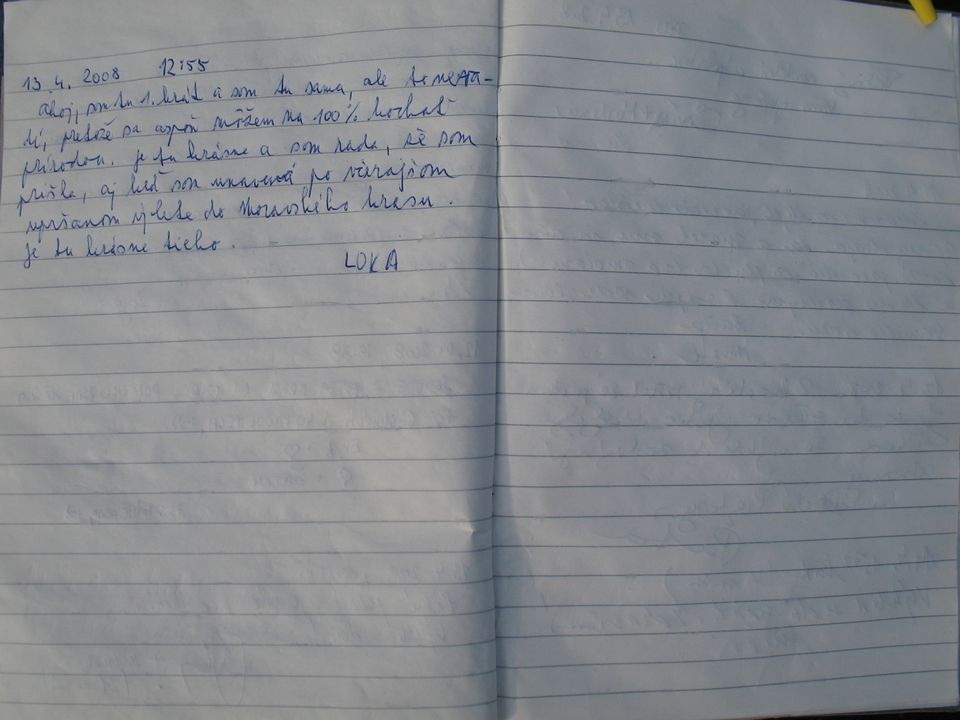 13.4. 2008 12:55
ahoj, som tu 1. krát a som tu sama, ale to neva-
dí, pretože sa aspoň môžem na 100% kochať
prírodou. je tu krásne a som rada, že som
prišla, aj keď som unavená po včerajšom
upršanom výlete do Moravského krasu.
je tu krásne ticho.
LOKA